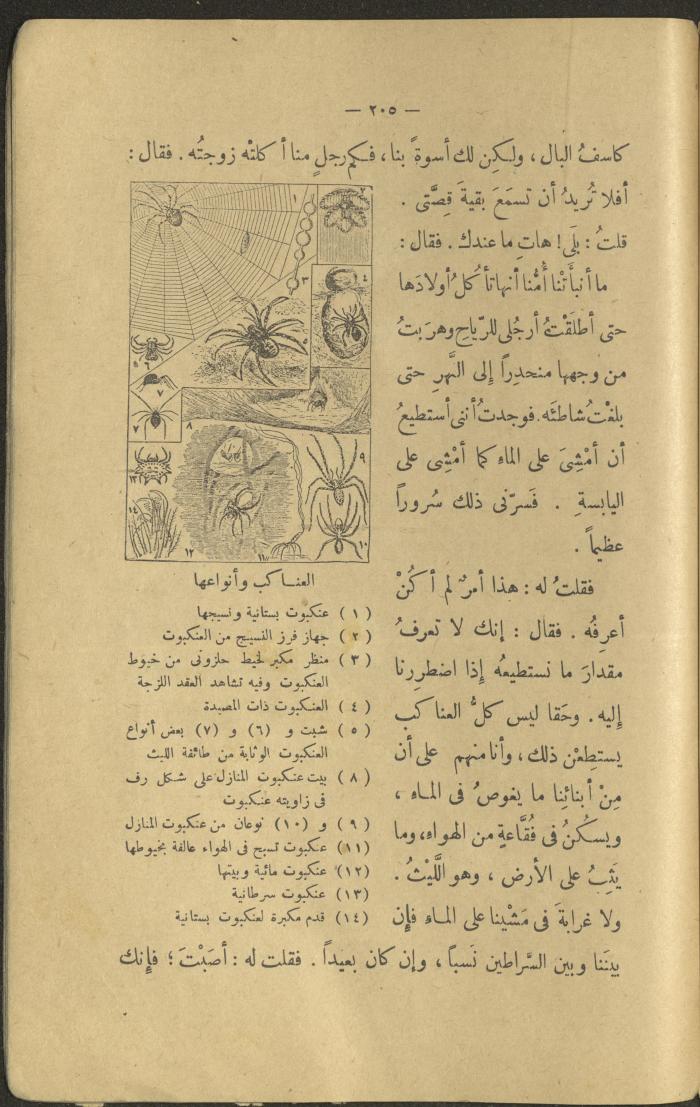 — ٢٠٥ —
كاسفُ البال ، ولكِن لك أسوةً بنا ، فكم رجلٍ منا أكلتْه زوجتُه . فقال :
أفلا تُريدُ أن تسمَعَ بقيةَ قِصَّتى .
قلتُ : بلَى ! هاتِ ما عندك . فقال :
ما أنبأَتْنا أُمُّنا أنها تأكلُ أولادَها
حتى أطلَقْتُ أرجُلى للرّياحِ وهرَبتُ
من وجهها منحدِراً إلى النَّهرِ حتى
بلغْتُ شاطئَه . فوجدتُ أننى أستطيعُ
أن أمْشِىَ على الماءِ كما أمْشِى على
اليابسةِ . فَسرّنى ذلك سُروراً
عظيماً .
فقلتُ له : هذا أمرٌ لم أكُنْ
أعرِفُه . فقال : إنك لا تعرفُ
مقدارَ ما نستطيعُه إذا اضطرِرنا
إليه . وحَقا ليس كلُّ العناكب
يستطِعْن ذلك ، وأنا منهم على أن
مِنْ أبنائِنا ما يغوصُ فى الماءِ ،
ويسكُنُ فى فُقَّاعةٍ من الهواءِ ، وما
يَثِبُ على الأرض ، وهو اللَّيْثُ .
ولا غرابةَ فى مَشْينا على الماءِ فإن
بينَنا وبين السَّراطين نَسباً ، وإن كان بعيداً . فقلت له : أصَبْتَ ؛ فإنك
١
٢
٣
٤
٥
٦
٧
٧
٨
٩
١٠
١١
١٢
١٣
١٤
العناكب وأنواعها
( ١ ) عنكبوت بستانية ونسيجها
( ٢ ) جهاز فرز النسيج من العنكبوت
( ٣ ) منظر مكبر لخيط حلزونى من خيوط
العنكبوت وفيه تشاهد العقد اللزجة
( ٤ ) العنكبوت ذات المصيدة
( ٥ ) شبت و (٦) و (٧) بعض أنواع
العنكبوت الوثابة من طائفة الليث
( ٨ ) بيت عنكبوت المنازل على شكل رف
فى زاويته عنكبوت
( ٩ ) و (١٠) نوعان من عنكبوت المنازل
(١١) عنكبوت تسبح فى الهواء عالقة بخيوطها
(١٢) عنكبوت مائية وبيتها
(١٣) عنكبوت سرطانية
(١٤) قدم مكبرة لعنكبوت بستانية